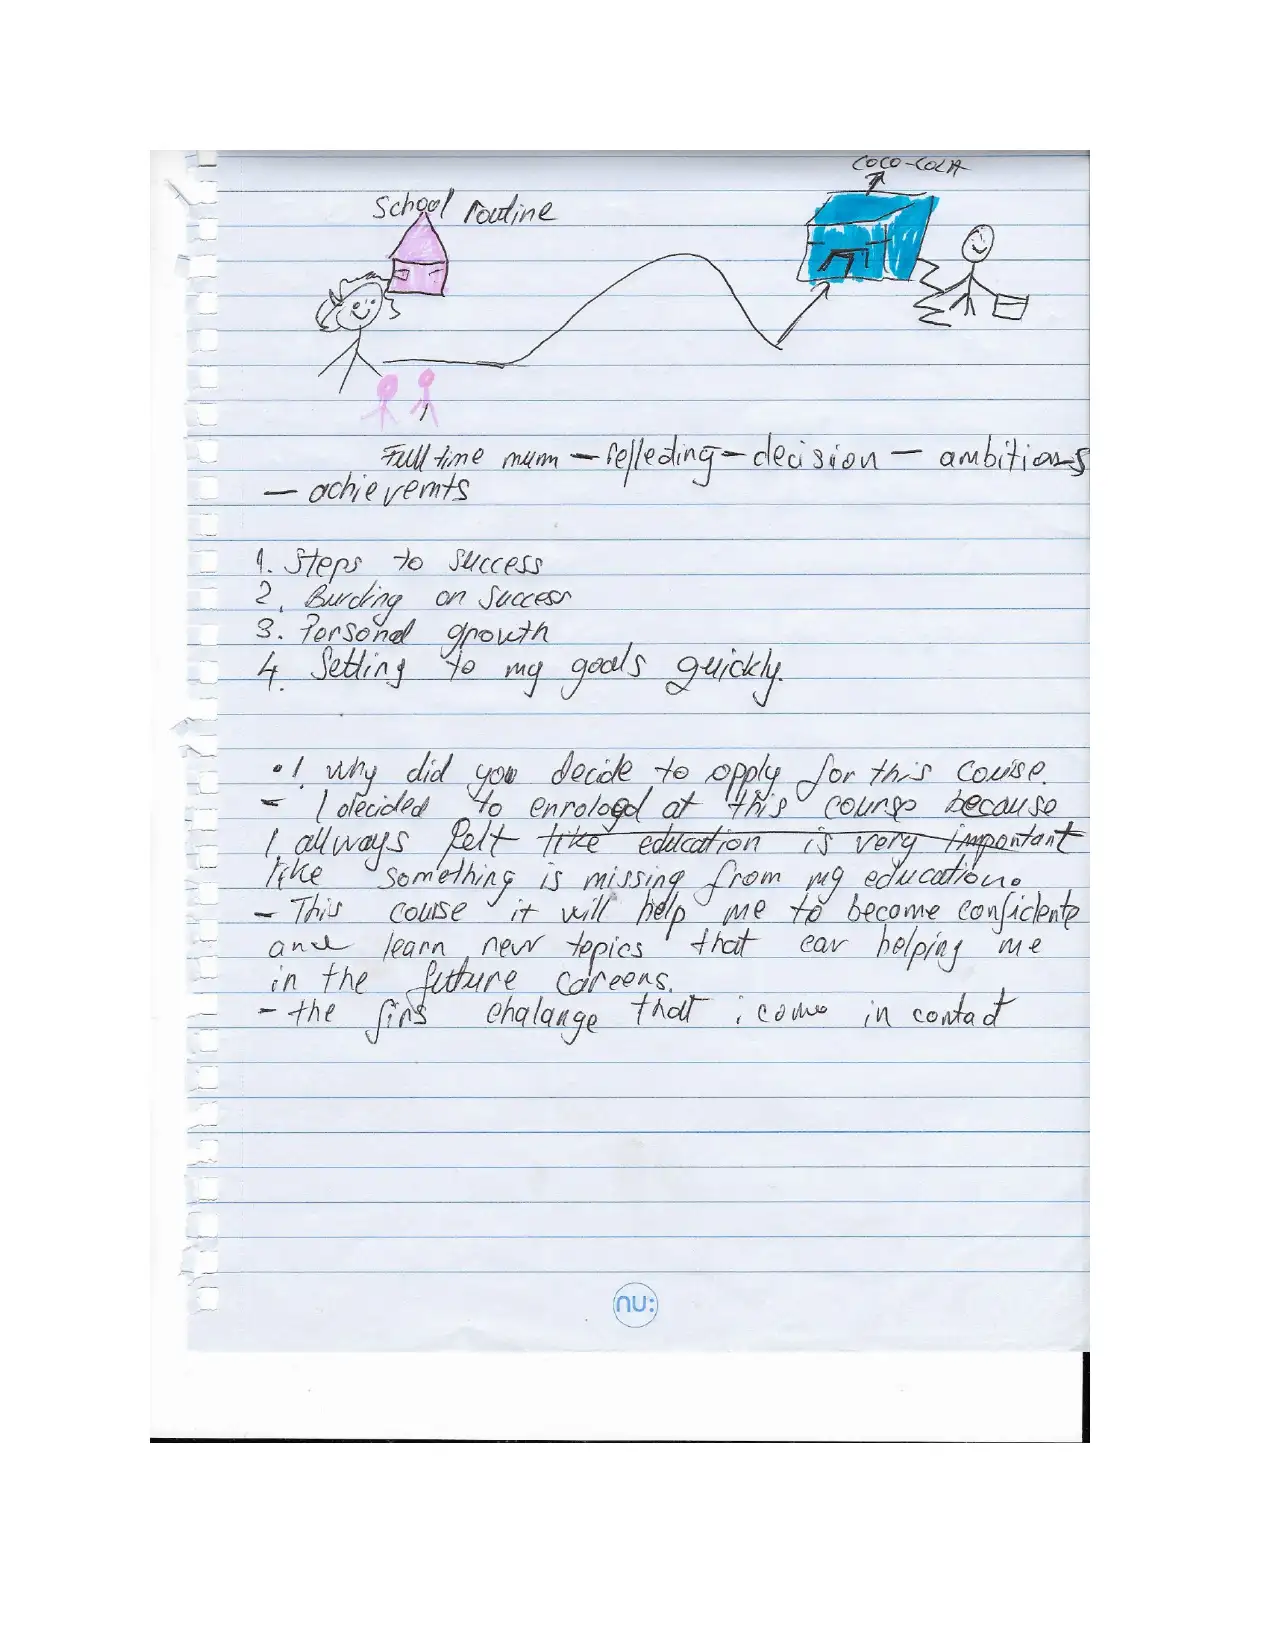 COCO-COLA
School routine
Full time mum — reflecting — decision — ambitions
— achievemts
1. Steps to success
2. Burding on success
3. Personal growth
4. Setting to my goals quickly.
• 1 why did you decide to apply for this course.
– I decided to enrologd at this course because
I allways felt like education is very important
like something is missing from my education.
– This course it will help me to become conficlente
and learn new topics that can helping me
in the future careers.
– the firs chalange that i come in contact
nu: